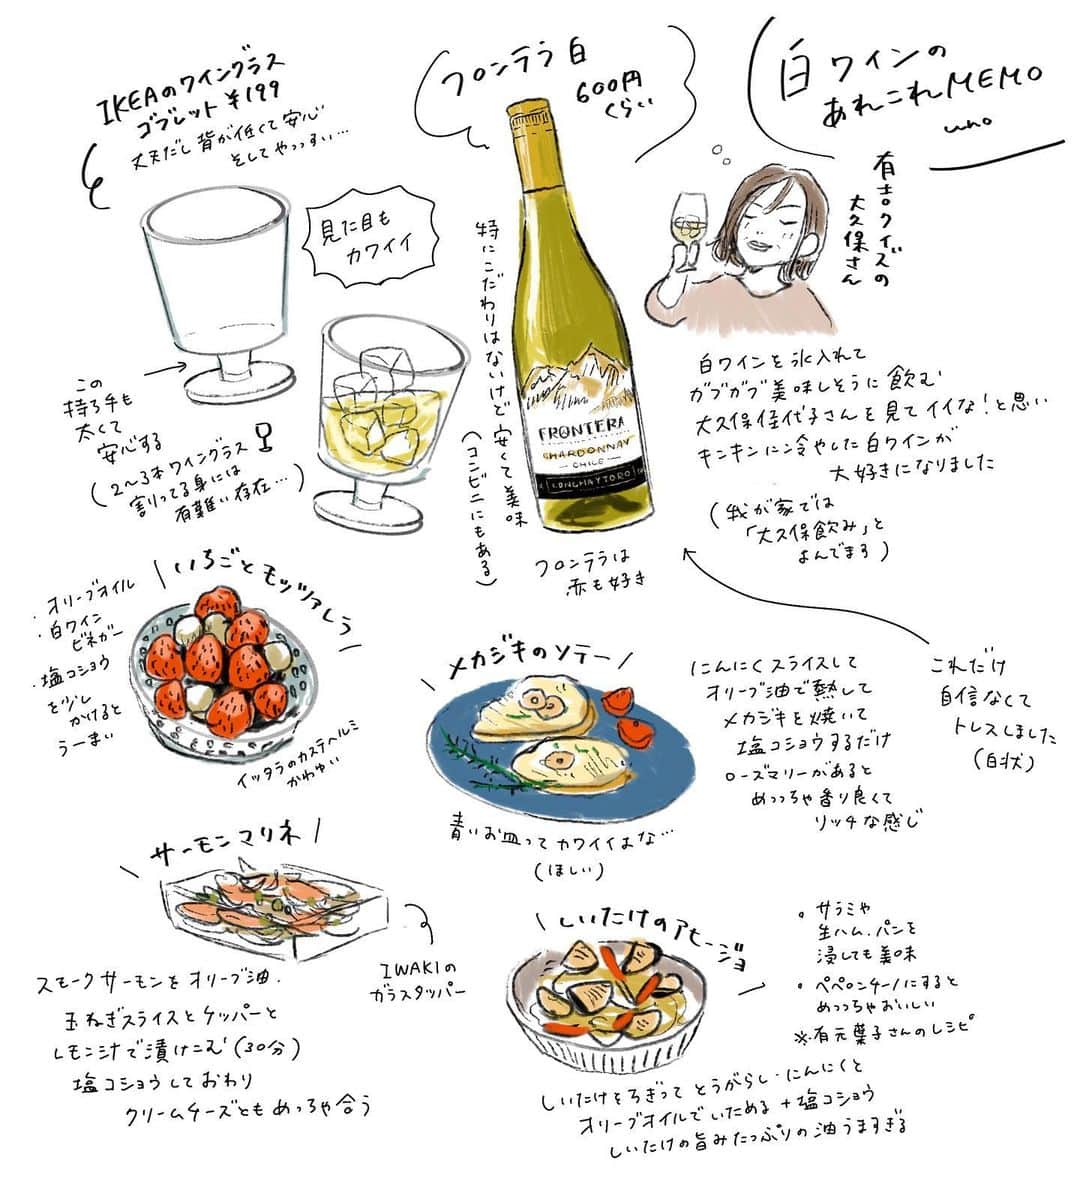 白ワインの
あれこれMEMO
uho
有吉クイズの
大久保さん
白ワインを氷入れて
ガブガブ美味しそうに飲む
大久保佳代子さんを見てイイな!と思い
キンキンに冷やした白ワインが
大好きになりました
(我が家では
「大久保飲み」と
よんでます)
フロンテラ白
600円
くらい
特にこだわりはないけど安くて美味
(コンビニにもある)
FRONTERA
CHARDONNAY
CHILE
CONCHA Y TORO
フロンテラは
赤も好き
これだけ
自信なくて
トレスしました
(白状)
IKEAのワイングラス
ゴブレット ¥199
丈夫だし背が低くて安心
そしてやっっすい…
見た目も
カワイイ
この
持ち手も
太くて
安心する
(2〜3本ワイングラス
割ってる身には
有難い存在…)
いちごとモッツァレラ
・オリーブオイル
・白ワイン
ビネガー
・塩コショウ
を少し
かけると
うーまい
イッタラのカステヘルミ
かわゆい
メカジキのソテー
にんにくスライスして
オリーブ油で熱して
メカジキを焼いて
塩コショウするだけ
ローズマリーがあると
めっっちゃ香り良くて
リッチな感じ
青いお皿ってカワイイよな…
(ほしい)
サーモンマリネ
IWAKIの
ガラスタッパー
スモークサーモンをオリーブ油.
玉ねぎスライスとケッパーと
レモン汁で漬けこむ(30分)
塩コショウしておわり
クリームチーズともめっちゃ合う
しいたけのアヒージョ
・サラミや
生ハム.パンを
浸しても美味
・ペペロンチーノにすると
めっっちゃおいしい
※有元葉子さんのレシピ
しいたけをちぎって とうがらし・にんにくと
オリーブオイルでいためる+塩コショウ
しいたけの旨みたっぷりの油うますぎる